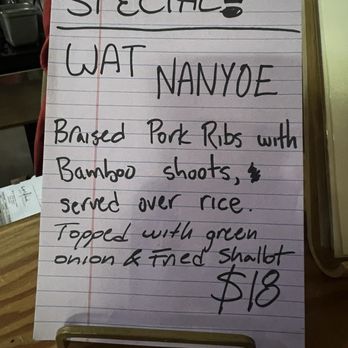 SPECIAL
WAT NANYOE
Braised Pork Ribs with
Bamboo shoots,
served over rice.
Topped with green
onion & Fried Shallot
$18